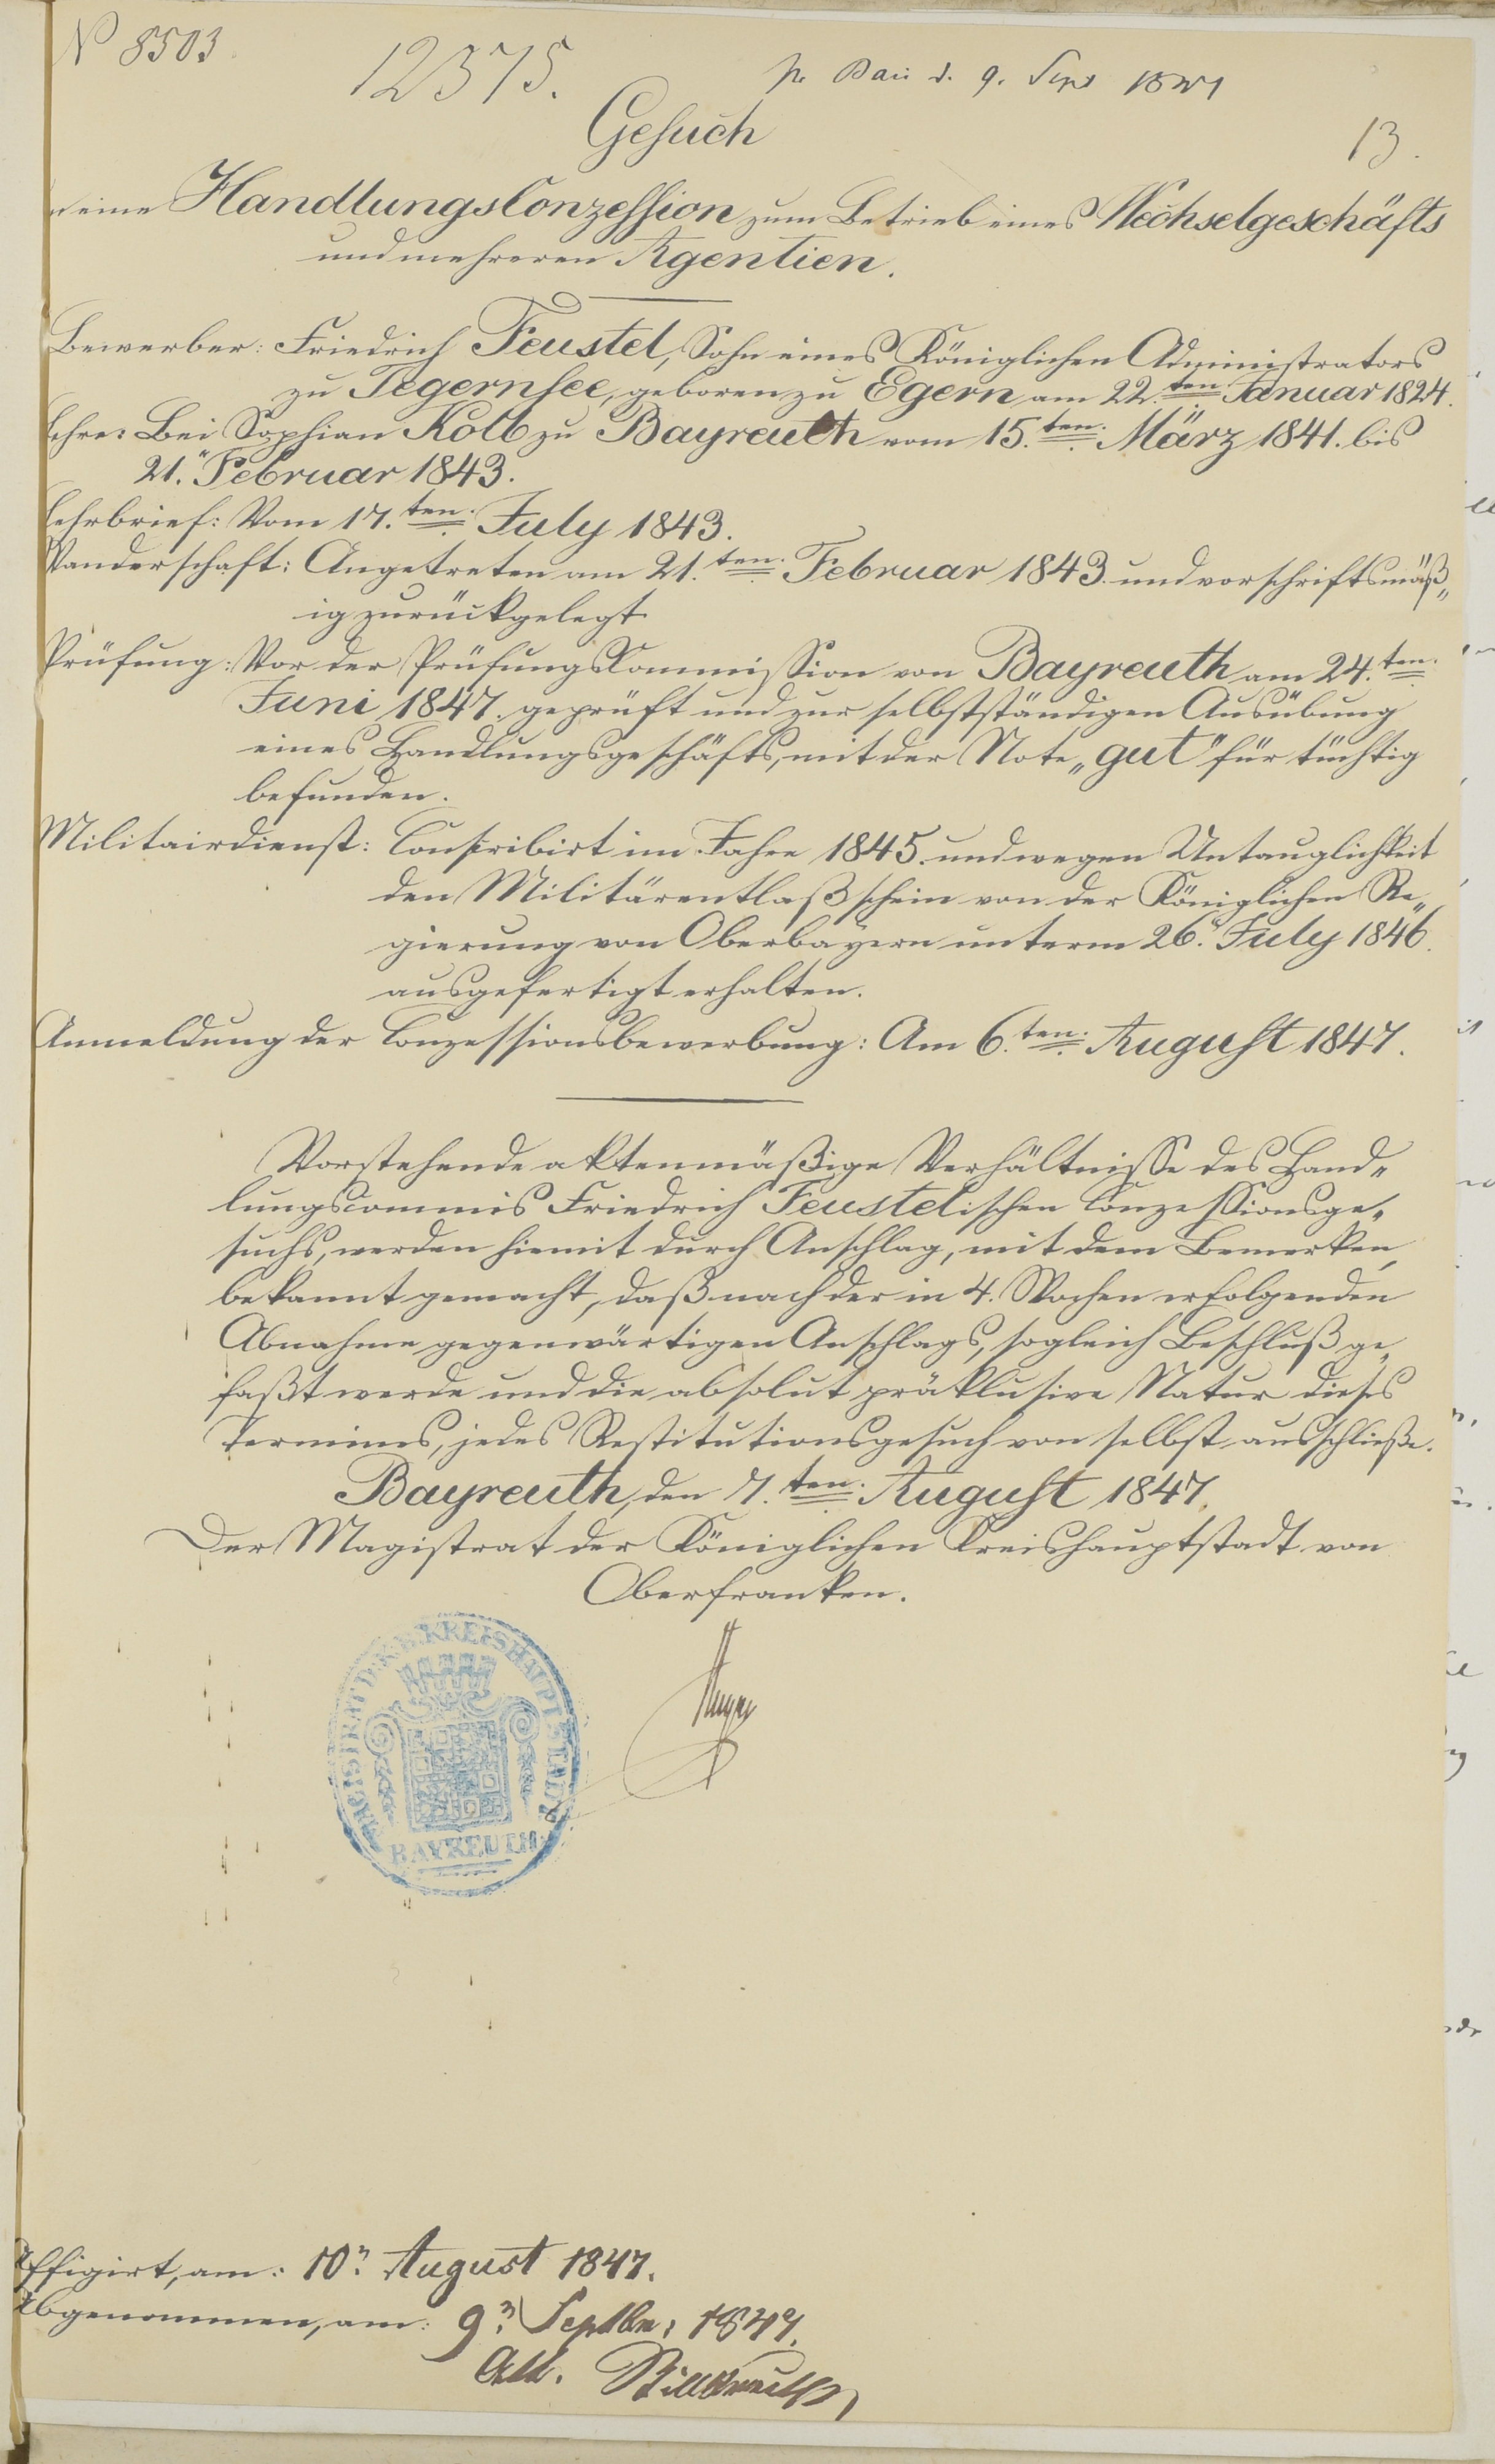 N 8503
12375.
pr Bai d. 9. Sept 1847
13.
Gesuch
eine HandlungsConzession zum Betrieb eines Wechselgeschäfts
und mehreren Agentien.
Bewerber: Friedrich Feustel, Sohn eines Königlichen Administrators
zu Tegernsee, geboren zu Egern am 22.ten Januar 1824.
Lehre: Bei Sophian Kolb zu Bayreuth vom 15.ten März 1841. bis
21. Februar 1843.
Lehrbrief: Vom 17.ten July 1843.
Wanderschaft: Angetreten am 21.ten Februar 1843. und vorschriftsmäß„
ig zurückgelegt.
Prüfung: Vor der PrüfungsCommission von Bayreuth am 24.ten
Juni 1847. geprüft und zur selbstständigen Ausübung
eines Handlungsgeschäfts, mit der Note „gut" für tüchtig
befunden.
Militairdienst: Conscribirt im Jahre 1845. und wegen Untauglichkeit
den Militärentlaßschein von der Königlichen Re„
gierung von Oberbayern unterm 26. July 1846.
ausgefertigt erhalten.
Anmeldung der Conzessionsbewerbung: Am 6.ten August 1847.
Vorstehende aktenmäßige Verhältnisse des Hand„
lungscommis Friedrich Feustelischen Conzessionsge„
suchs, werden hiemit durch Anschlag, mit dem Bemerken
bekannt gemacht, daß nach der in 4. Wochen erfolgenden
Abnahme gegenwärtigen Anschlags, sogleich Beschluß ge„
faßt werde und die absolut präklusive Natur dieses
Termines, jedes Restitutionsgesuch von selbst ausschließe.
Bayreuth, den 7.ten August 1847.
Der Magistrat der Königlichen Kreishauptstadt von
Oberfranken.
MAGISTRAT D. K. B. KREISHAUPTSTADT
BAYREUTH
Affigirt, am: 10n August 1847.
Abgenommen, am: 9n Septbr. 1847.